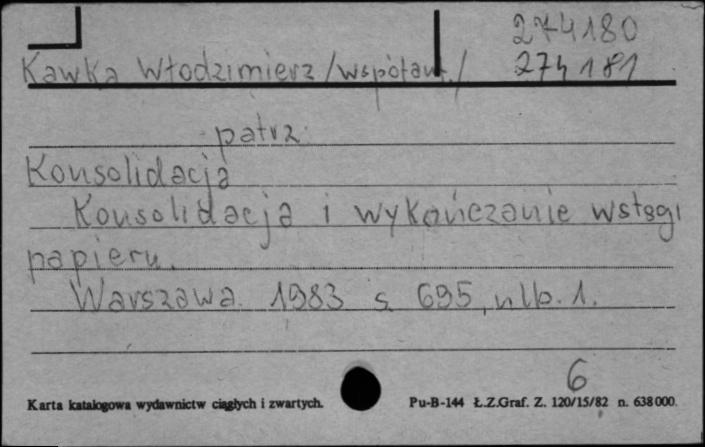 274180
Kawka Włodzimierz /współaut./ 274181
patrz:
Konsolidacja
Konsolidacja i wykończanie wstęgi
papieru.
Warszawa 1983 s. 695, nlb. 1.
6
Karta katalogowa wydawnictw ciągłych i zwartych. Pu-B-144 Ł.Z.Graf. Z. 120/15/82 n. 638000.